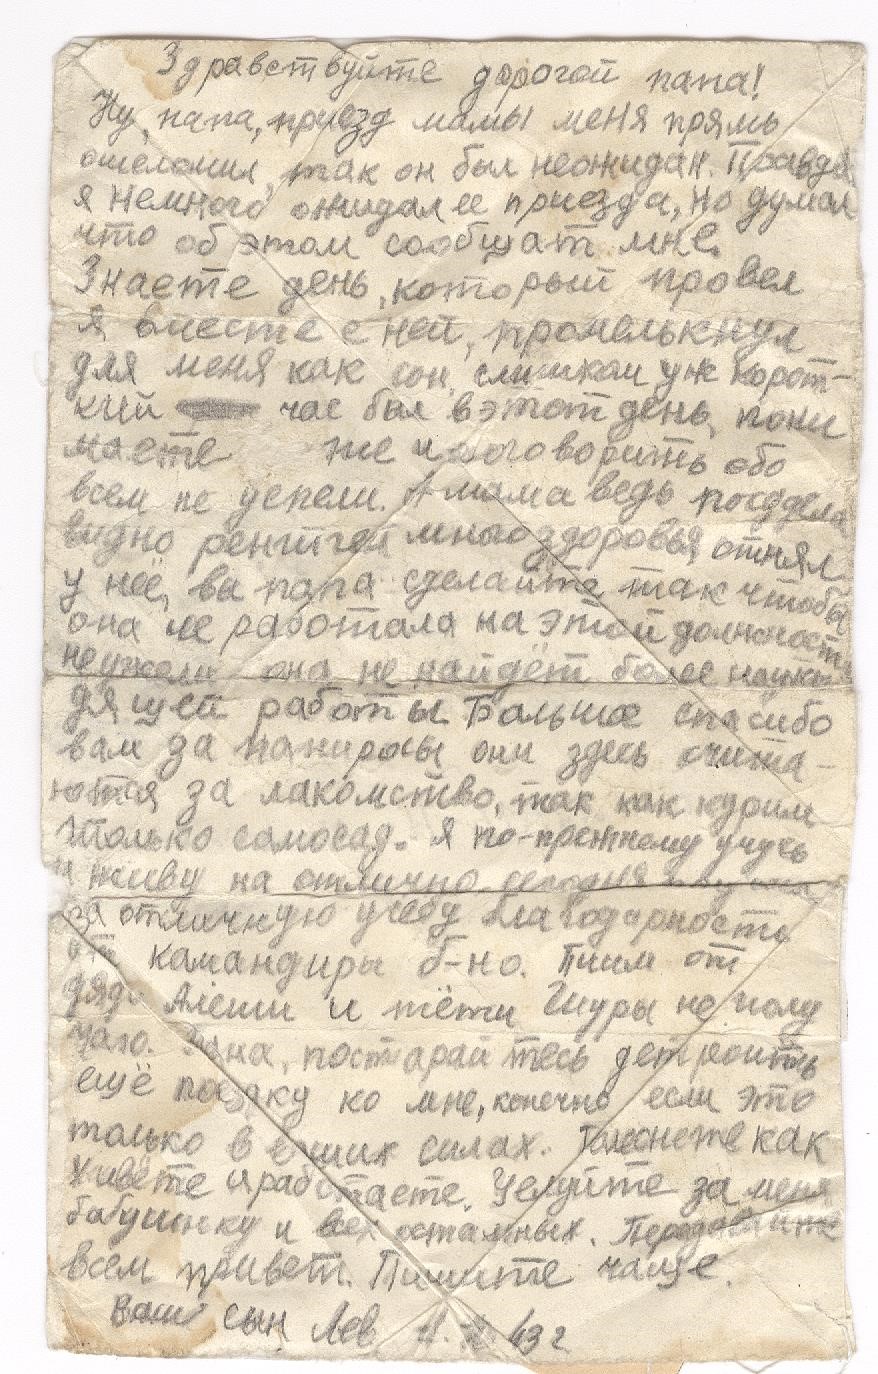 Здравствуйте дорогой папа!
Ну, папа, приезд мамы меня прямь
ошеломил, так он был неожидан. Правда
я немного ожидал ее приезда, но думал
что об этом сообщат мне.
Знаете день, который провел
я вместе с ней, промелькнул
для меня как сон, слишком уж корот-
кий час был в этот день, пони
маете же и поговорить обо
всем не успели. А мама ведь поседела
видно рентген много здоровья отнял
у неё, вы папа сделайте так чтобы
она не работала на этой должности
неужели она не найдёт более
дящей работы Большое спасибо
вам за папиросы они здесь счита-
ются за лакомство, так как курим
только самосад. Я по-прежнему учусь
и живу на отлично сегодня получил
за отличную учебу благодарность
от командиры б-но. Писем от
дяди Алёши и тёти Шуры не полу
чаю. Папа, постарайтесь устроить
ещё поездку ко мне, конечно если это
только в ваших силах. как
живёте и работаете. Целуйте за меня
бабушку и всех остальных. Передавайте
всем привет. Пишите чаще.
Ваш сын Лев 43 г